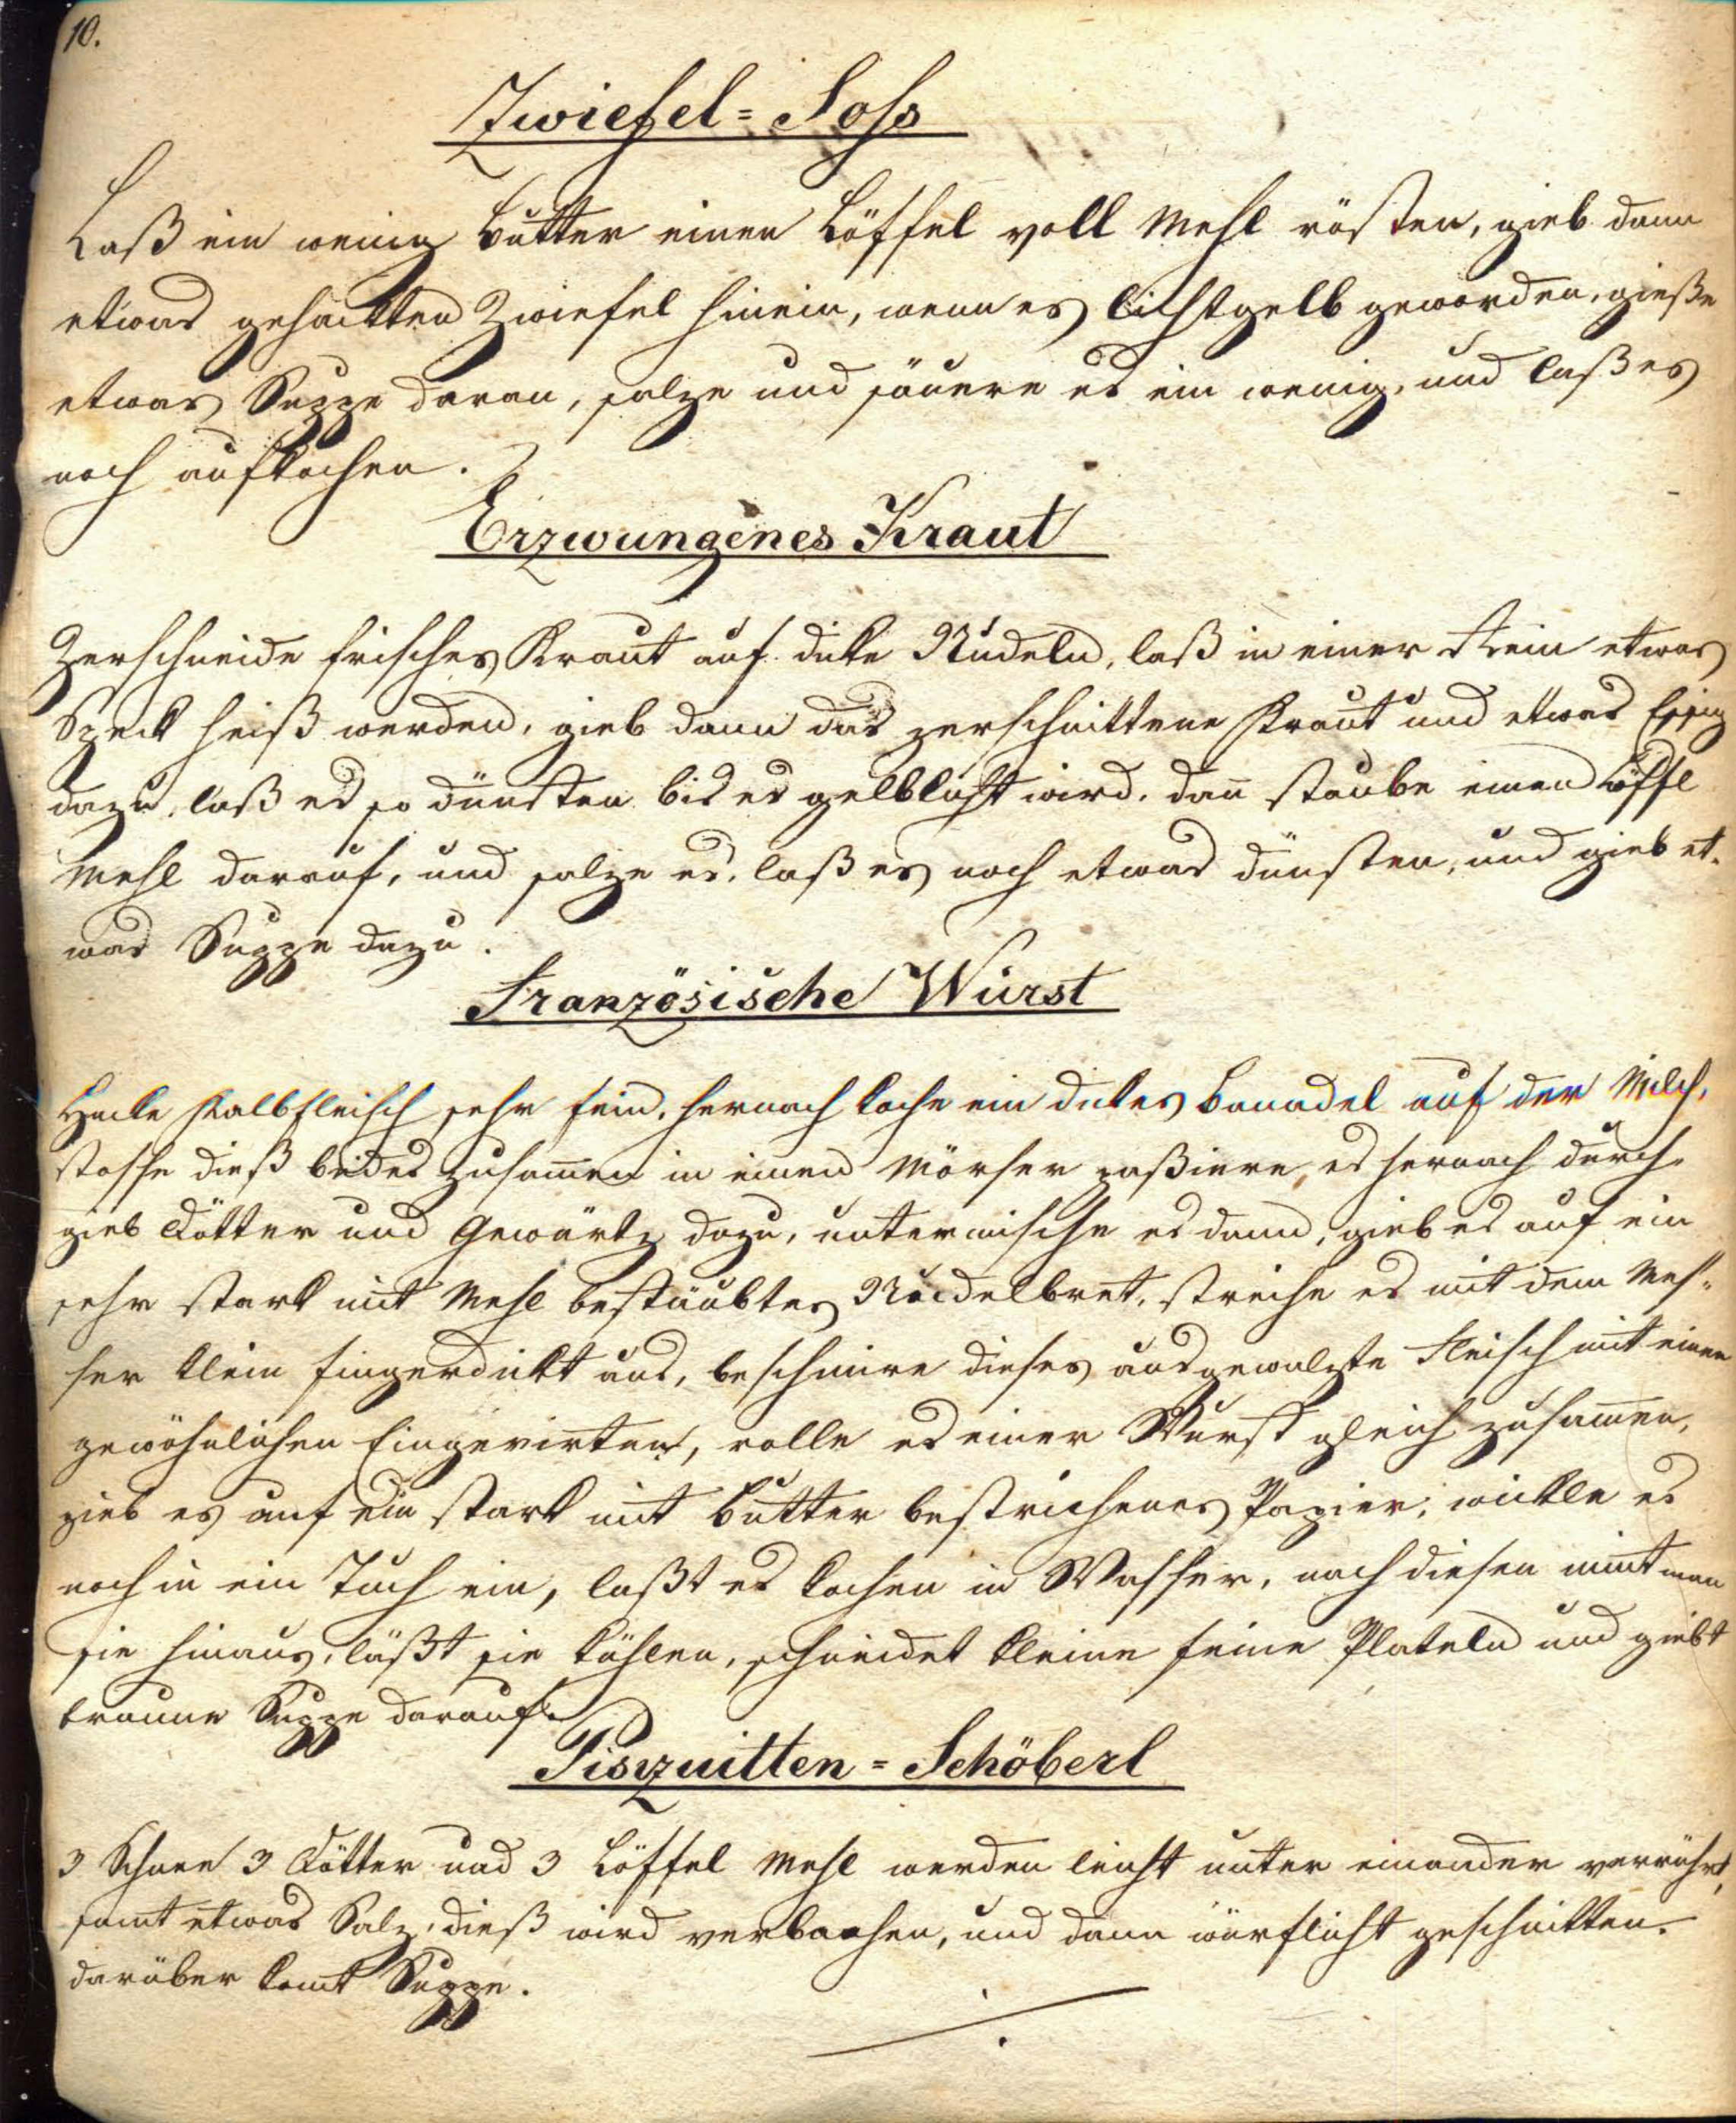 10.
Zwiefel=Soß
Laß ein wenig Butter einen Löffel voll Mehl rösten, gieb dann
etwas gehackten Zwiefel hinein, wenn es lichtgelb geworden, gieße
etwas Suppe daran, salze und säuere es ein wenig, und laß es
noch aufkochen.
Erzwungenes Kraut
Zerschneide frisches Kraut auf dicke Nudeln, laß in einer Rein etwas
Speck heiß werden, gieb dann das zerschnittene Kraut und etwas Essig
dazu, laß es so dünsten bis es gelblicht wird, dan̄ staube einen Löffl
Mehl darauf, und salze es, laß es noch etwas dünsten, und gieb et-
was Suppe dazu.
Französische Wurst
Hacke Kalbfleisch sehr fein, hernach koche ein dickes Banadel auf der Milch,
stosse dieß beides zusam̄en in einen Mörser paßiere es hernach durch,
gieb Dötter und Gewürtz dazu, untermische es dann, gieb es auf ein
sehr stark mit Mehl bestäubtes Nudelbret, streiche es mit dem Mes-
ser klein fingerdickt aus, beschmire dieses ausgewalzte Fleisch mit einen
gewöhnlichen Eingerirten, rolle es einer Wurst gleich zusam̄en,
gieb es auf ein stark mit Butter bestrichenes Papier, wickle es
noch in ein Tuch ein, laßt es kochen in Wasser, nach diesen nim̄t man
sie hinaus, läßt sie kühlen, schneidet kleine feine Plateln und giebt
braune Suppe darauf.
Pisquitten=Schöberl
3 Schnee 3 Dötter und 3 Löffel Mehl werden leicht unter einander verrührt,
samt etwas Salz, dieß wird verbachen, und dann würflicht geschnitten.
darüber kom̄t Suppe.